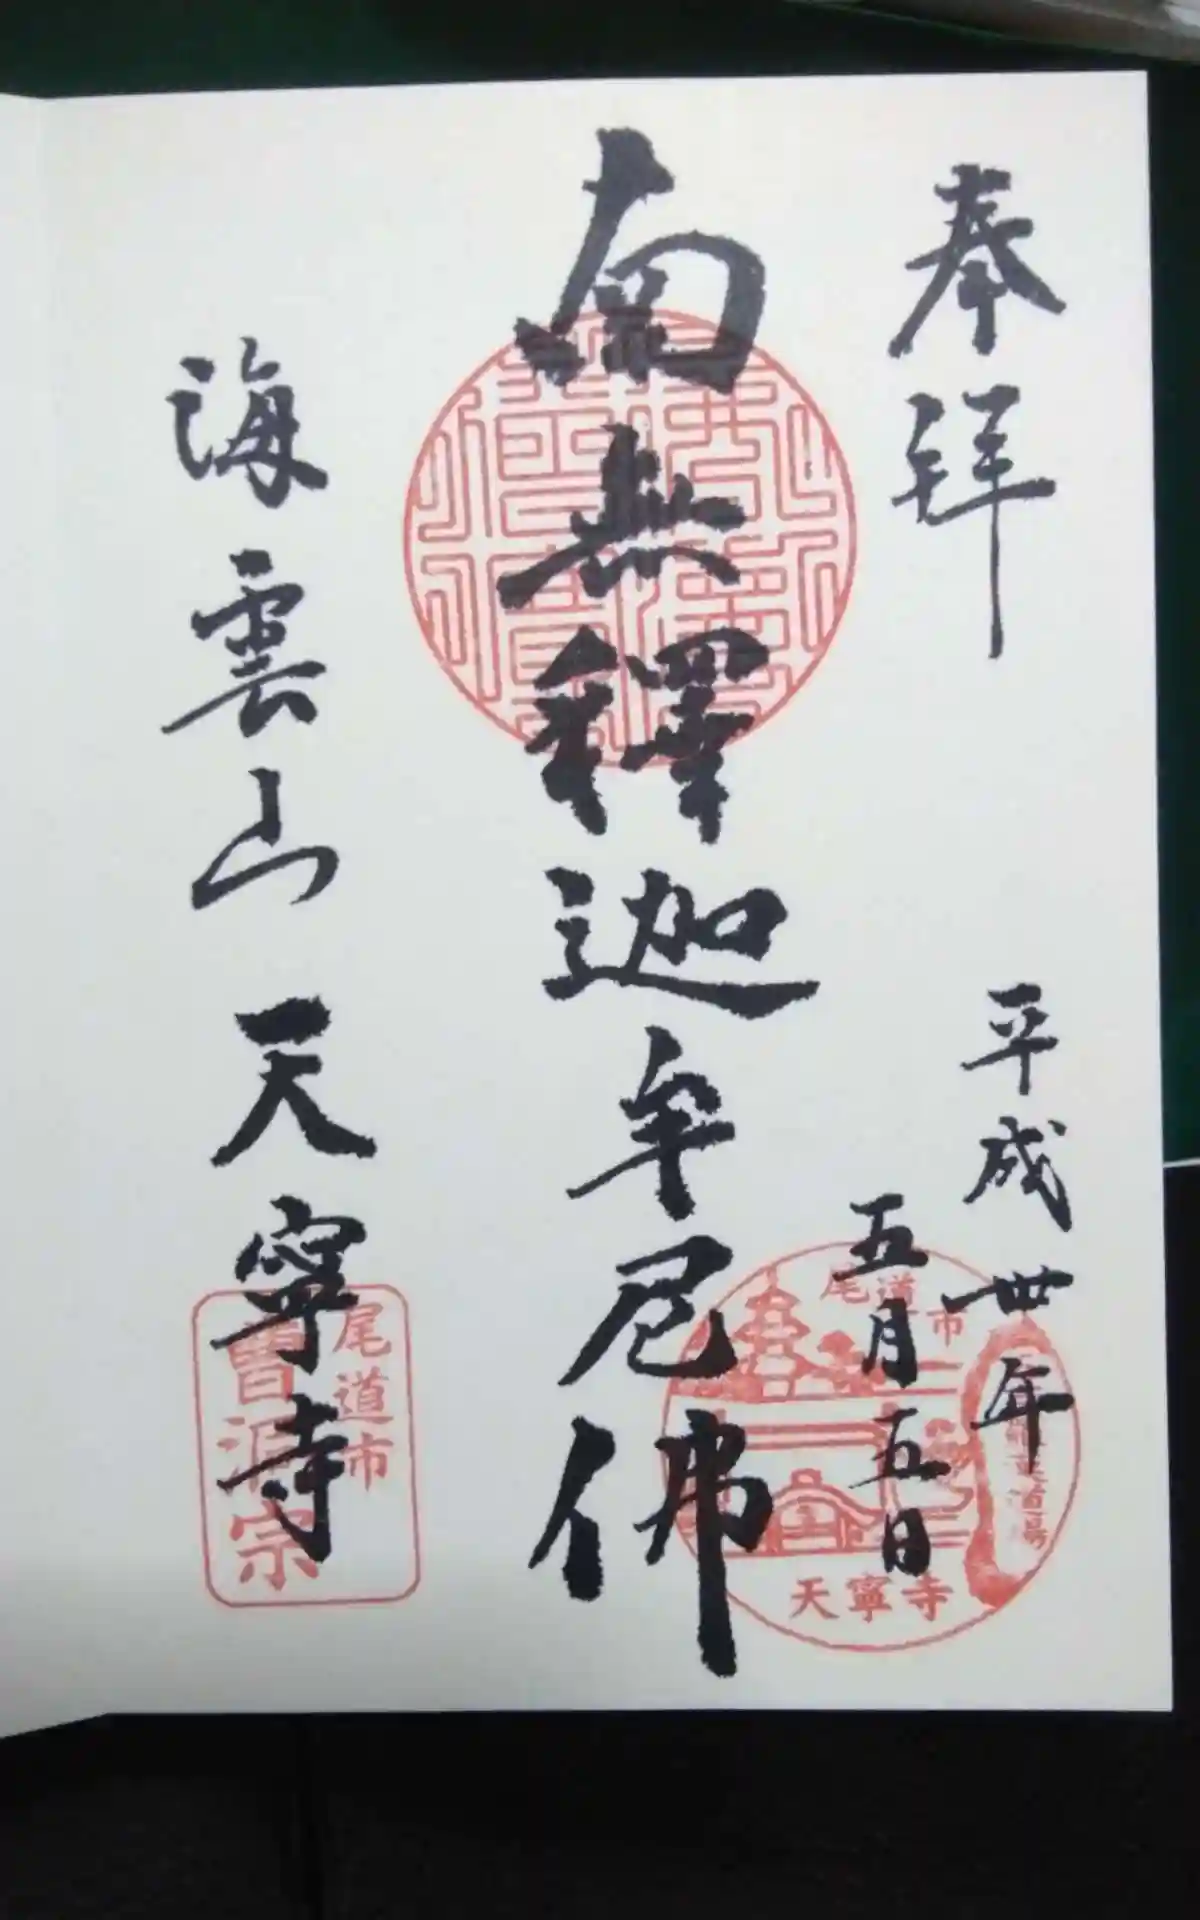 奉拜
平成卅年
五月五日
南無釋迦牟尼佛
海雲山天寧寺
尾道市
天寧寺
尾道市
曹洞宗